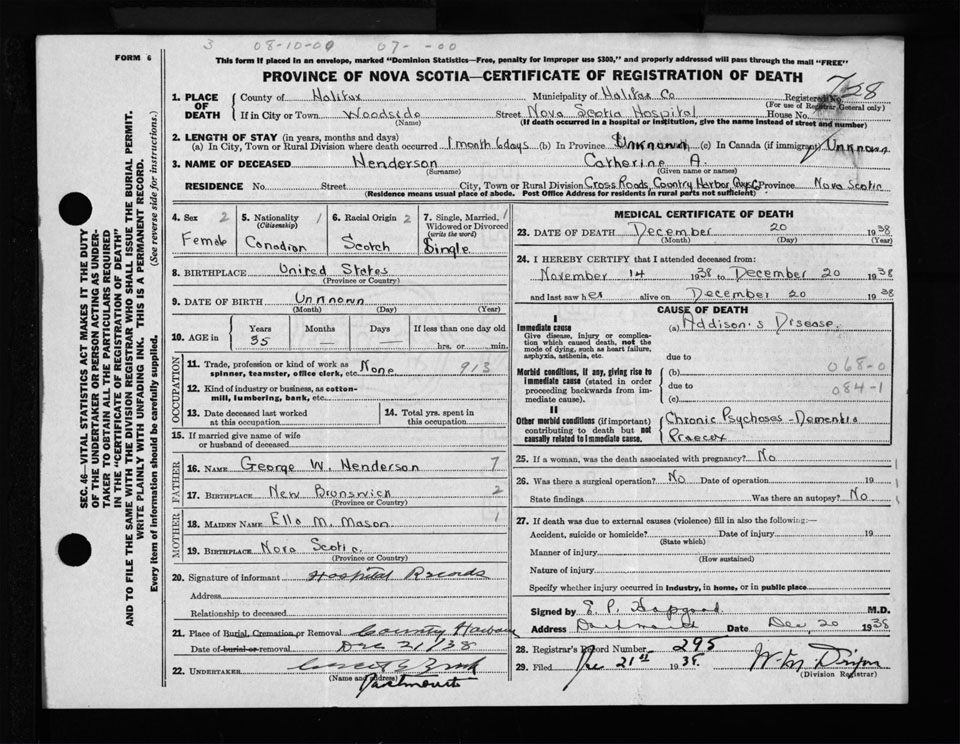 3 08-10-00 07- -00
FORM 6
This form if placed in an envelope, marked "Dominion Statistics—Free, penalty for improper use $300," and properly addressed will pass through the mail "FREE"
PROVINCE OF NOVA SCOTIA—CERTIFICATE OF REGISTRATION OF DEATH
SEC. 46—VITAL STATISTICS ACT MAKES IT THE DUTY
OF THE UNDERTAKER OR PERSON ACTING AS UNDER-
TAKER TO OBTAIN ALL THE PARTICULARS REQUIRED
IN THE "CERTIFICATE OF REGISTRATION OF DEATH"
AND TO FILE THE SAME WITH THE DIVISION REGISTRAR WHO SHALL ISSUE THE BURIAL PERMIT.
WRITE PLAINLY WITH UNFADING INK. THIS IS A PERMANENT RECORD.
Every item of information should be carefully supplied. (See reverse side for instructions.)
1. PLACE OF DEATH County of Halifax Municipality of Halifax Co Registered No. 728
(For use of Registrar General only)
If in City or Town Woodside Street Nova Scotia Hospital House No.
(Name) (If death occurred in a hospital or institution, give the name instead of street and number)
2. LENGTH OF STAY (in years, months and days)
(a) In City, Town or Rural Division where death occurred 1 month 6 days (b) In Province Unknown (c) In Canada (if immigrant) Unknown
3. NAME OF DECEASED Henderson Catherine A.
(Surname) (Given name or names)
RESIDENCE No. Street City, Town or Rural Division Cross Roads, Country Harbor Guys C Province Nova Scotia
(Residence means usual place of abode. Post Office Address for residents in rural parts not sufficient)
4. Sex 2 5. Nationality 1 6. Racial Origin 2 7. Single, Married, 1
(Citizenship) Widowed or Divorced
(write the word)
Female Canadian Scotch Single
8. BIRTHPLACE United States
(Province or Country)
9. DATE OF BIRTH Unknown
(Month) (Day) (Year)
10. AGE in Years Months Days If less than one day old
35 — — hrs. or min.
OCCUPATION
11. Trade, profession or kind of work as None 913
spinner, teamster, office clerk, etc.
12. Kind of industry or business, as cotton-
mill, lumbering, bank, etc.
13. Date deceased last worked 14. Total yrs. spent in
at this occupation this occupation
15. If married give name of wife
or husband of deceased
FATHER
16. NAME George W. Henderson 7
17. BIRTHPLACE New Brunswick 2
MOTHER
18. MAIDEN NAME Ella M. Mason 1
19. BIRTHPLACE Nova Scotia
(Province or Country)
20. Signature of informant Hospital Records
Address
Relationship to deceased
21. Place of Burial, Cremation, or Removal Country Harbour
Date of burial or removal Dec 21/38
22. UNDERTAKER
(Name and address)
Dartmouth
MEDICAL CERTIFICATE OF DEATH
23. DATE OF DEATH December 20 1938
(Month) (Day) (Year)
24. I HEREBY CERTIFY that I attended deceased from:
November 14 1938 to December 20 1938
and last saw her alive on December 20 1938
CAUSE OF DEATH
I
Immediate cause (a) Addison's Disease.
Give disease, injury or complica-
tion which caused death, not the
mode of dying, such as heart failure,
asphyxia, asthenia, etc. due to
Morbid conditions, if any, giving rise to (b) 068-0
immediate cause (stated in order due to 084-1
proceeding backwards from im-
mediate cause). (c)
II
Other morbid conditions (if important) Chronic Psychoses - Dementia
contributing to death but not Praecox
causally related to immediate cause.
25. If a woman, was the death associated with pregnancy? No
26. Was there a surgical operation? No Date of operation 19
State findings Was there an autopsy? No
27. If death was due to external causes (violence) fill in also the following:—
Accident, suicide or homicide? Date of injury 19
(State which)
Manner of injury
(How sustained)
Nature of injury
Specify whether injury occurred in industry, in home, or in public place
Signed by E. P. Hapgood M.D.
Address Dartmouth Date Dec 20 1938
28. Registrar's Record Number 295
29. Filed Dec 21st 1938.
(Division Registrar)